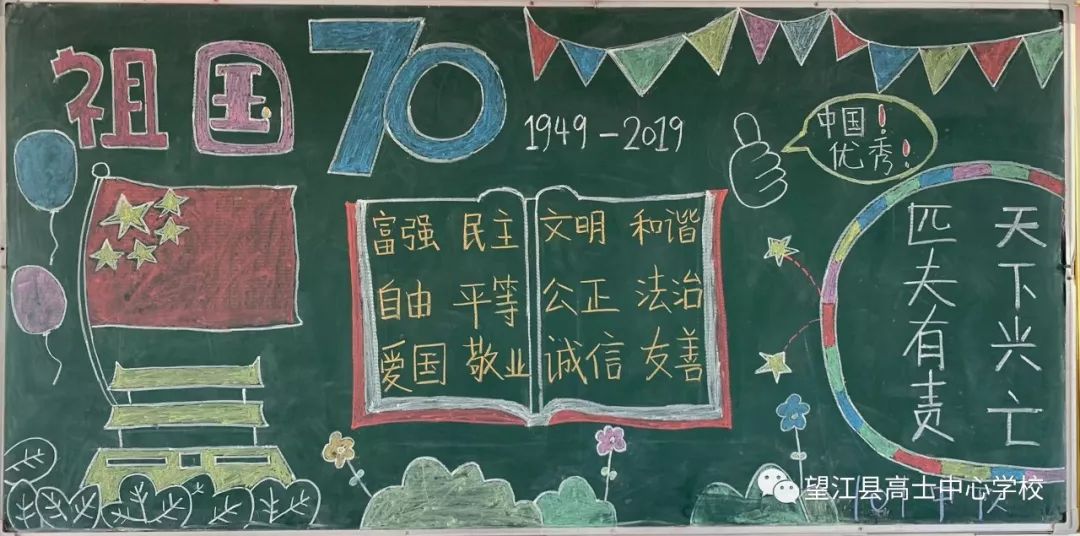 祖国70
1949-2019
中国！
优秀！
富强 民主 文明 和谐
自由 平等 公正 法治
爱国 敬业 诚信 友善
天下兴亡
匹夫有责
望江县高士中心学校